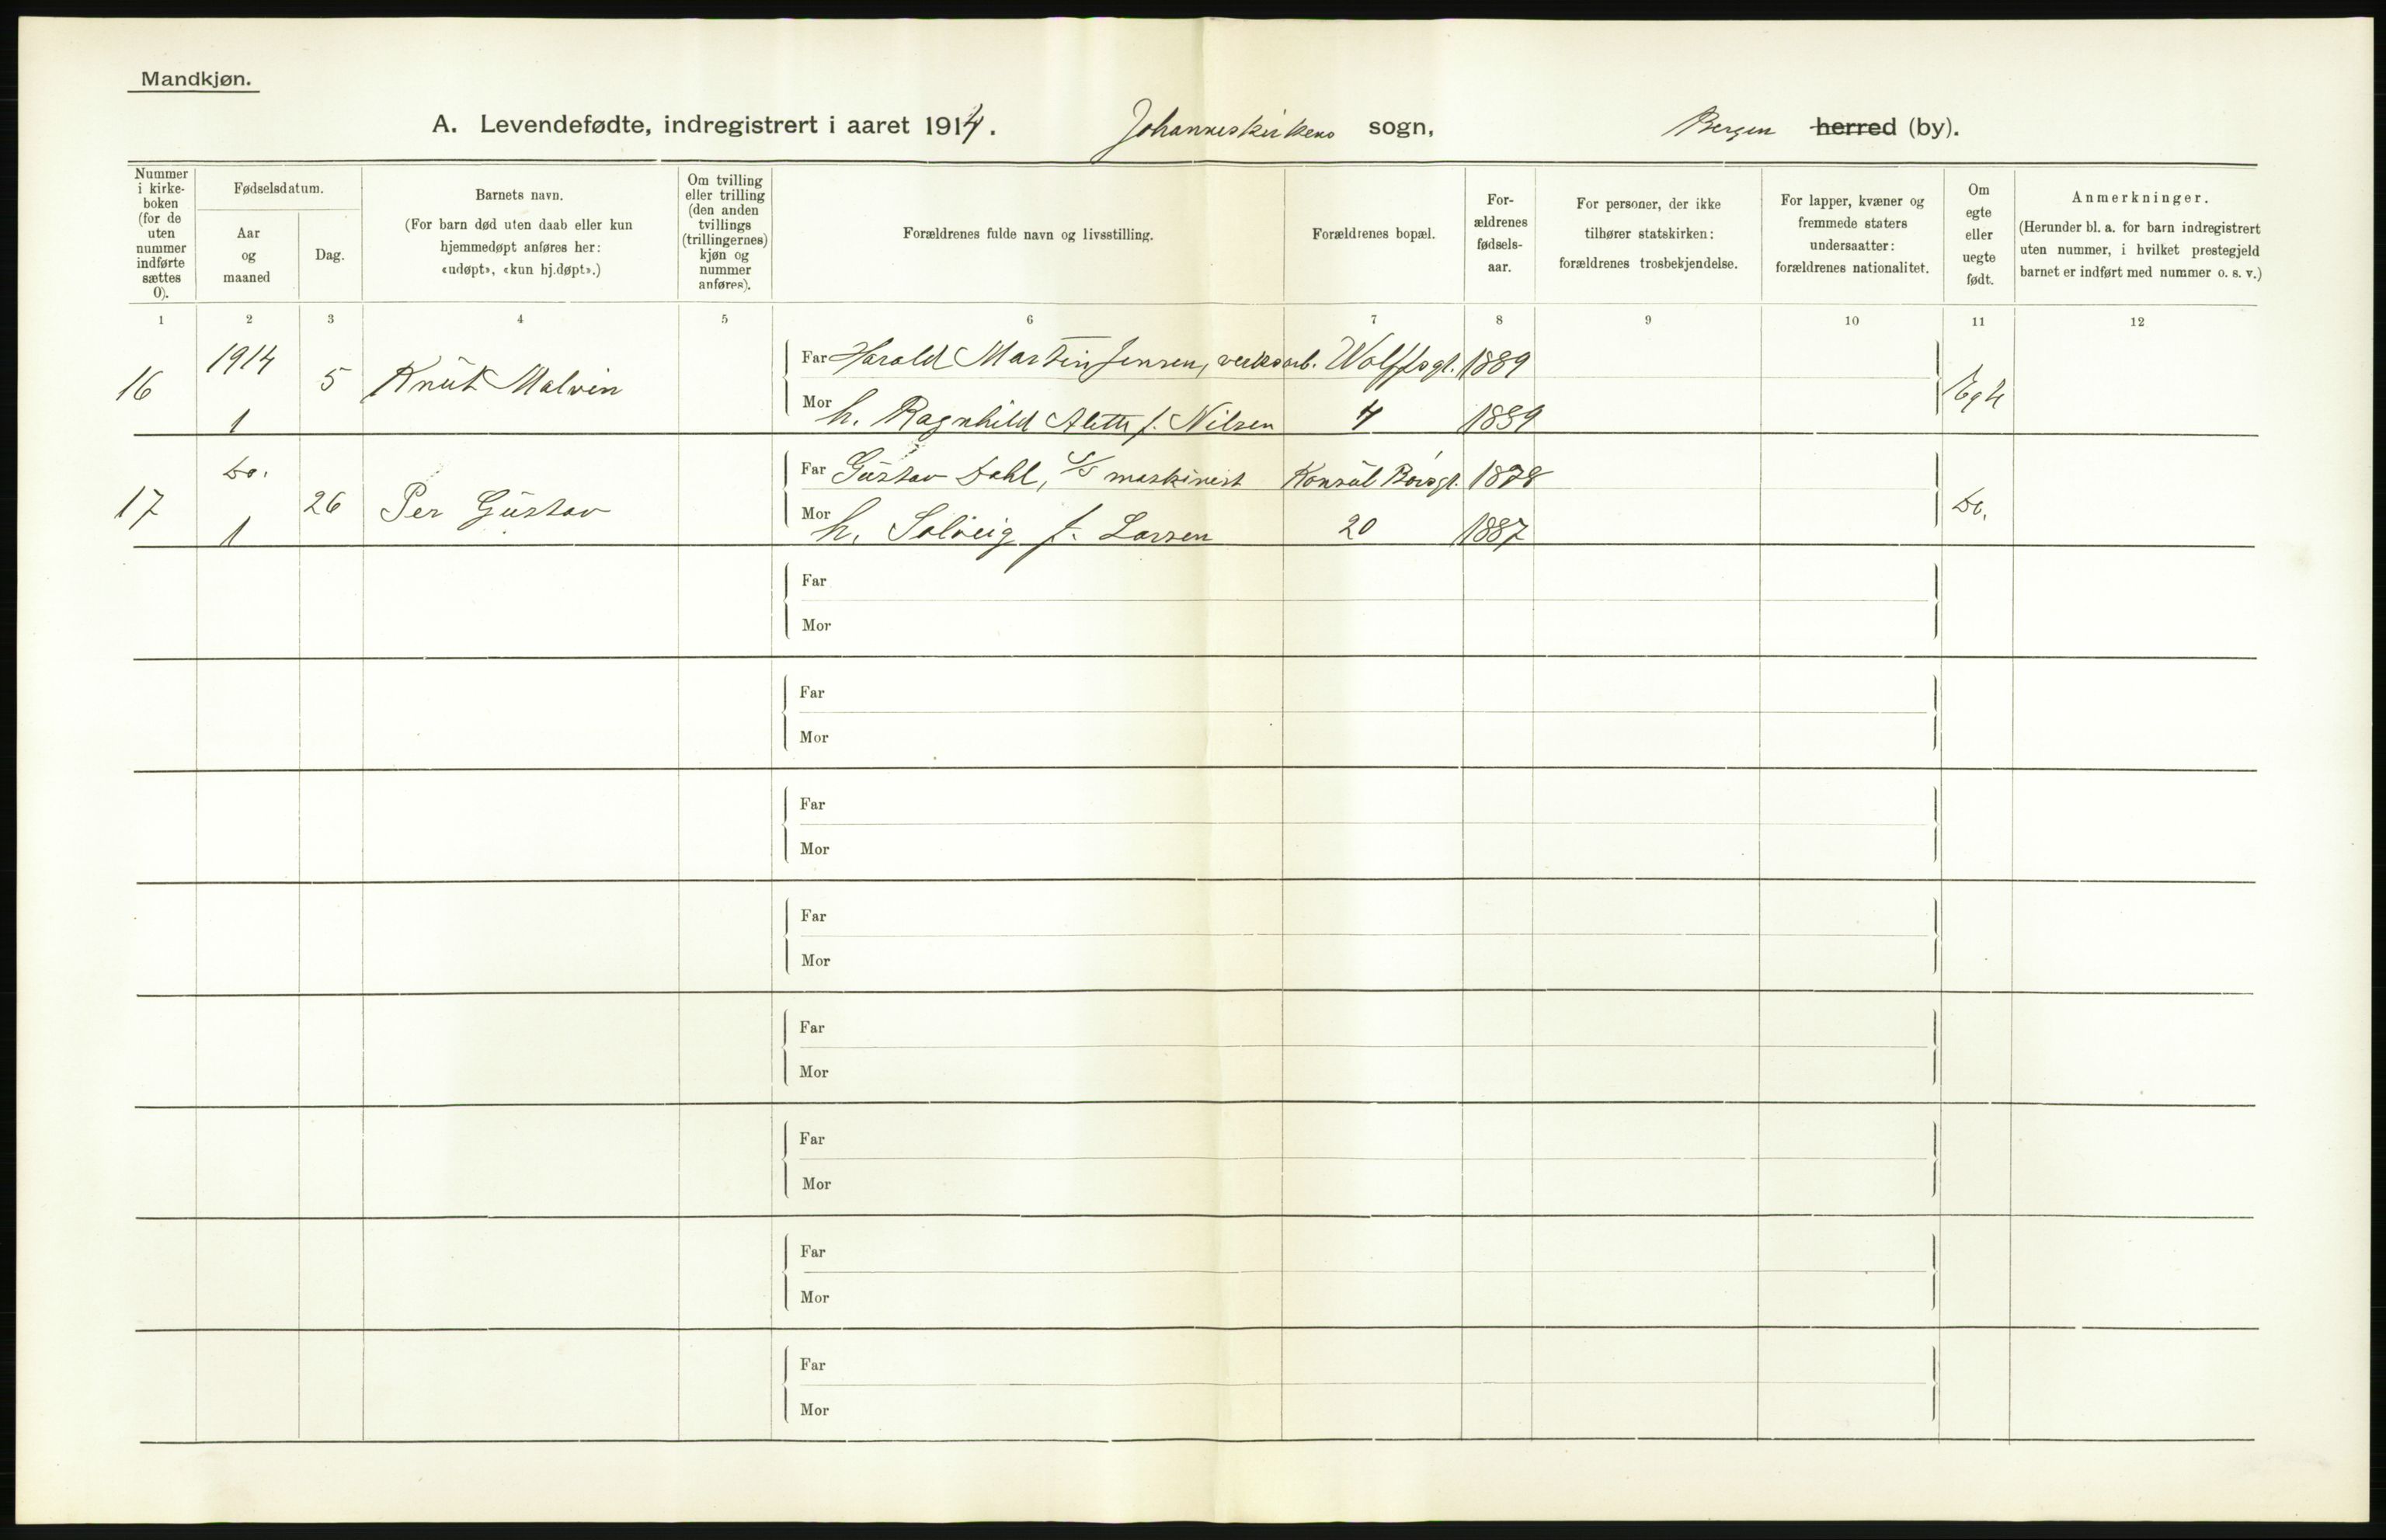 Mandkjøn.
A. Levendefødte, indregistrert i aaret 1914. Johanneskirkens sogn, Bergen herred (by).
Nummer i kirke- boken (for de uten nummer indførte sættes 0).
Fødselsdatum.
Aar og maaned
Dag.
Barnets navn.
(For barn død uten daab eller kun hjemmedøpt anføres her: «udøpt», «kun hj.døpt».)
Om tvilling eller trilling (den anden tvillings (trillingernes) kjøn og nummer anføres).
Forældrenes fulde navn og livsstilling.
Forældrenes bopæl.
For- ældrenes fødsels- aar.
For personer, der ikke tilhører statskirken: forældrenes trosbekjendelse.
For lapper, kvæner og fremmede staters undersaatter: forældrenes nationalitet.
Om egte eller uegte født.
Anmerkninger.
(Herunder bl. a. for barn indregistrert uten nummer, i hvilket prestegjeld barnet er indført med nummer o. s. v.)
1 2 3 4 5 6 7 8 9 10 11 12
16 1914 1 5 Knut Malvin
Far Harald Martin Jensen, verksarb. Wolffsgt. 1889
Mor h. Ragnhild Alette f. Nilsen 4 1889
Egte
17 Do. 1 26 Per Gustav
Far Gustav Dahl, S/S maskinist Konsul Børsgt. 1878
Mor h. Solveig f. Larsen 20 1887
Do.
Far
Mor
Far
Mor
Far
Mor
Far
Mor
Far
Mor
Far
Mor
Far
Mor
Far
Mor